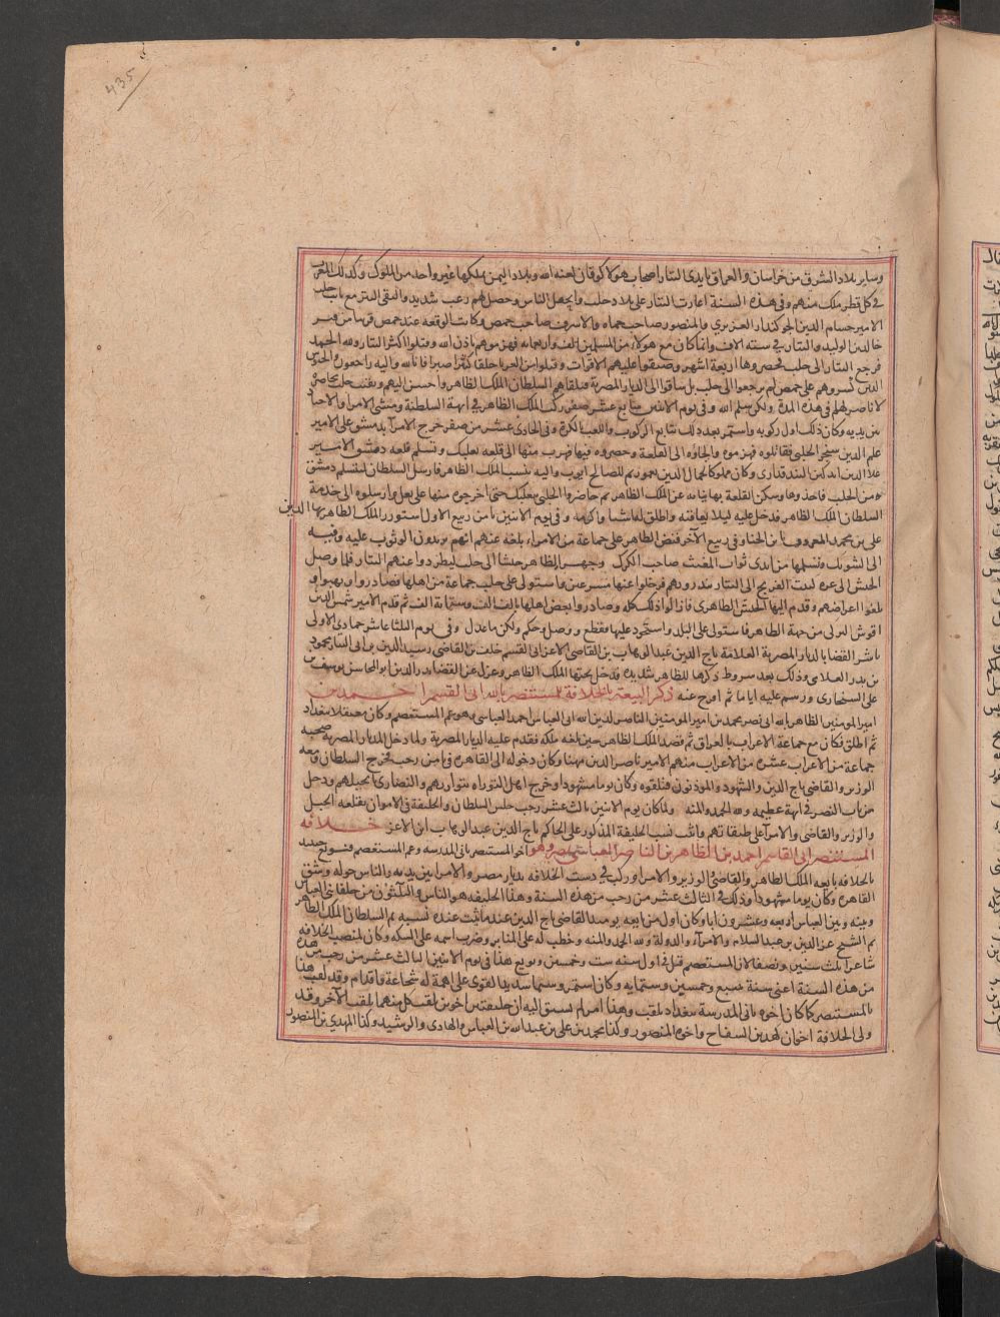 435
وساير بلاد الشرق من خراسان والعراق بايدى التتار اصحاب هولاكو قان لعنه الله وبلاد اليمن يملكها غير واحد من الملوك وكذلك المغرب
فى كل قطر ملك منهم وفى هذه السنة اغارت التتار على بلاد حلب وانجفل الناس وحصل لهم رعب شديد والتقى التتر مع نايب حلب
الامير حسام الدين الجوكندار العزيزي والمنصور صاحب حماه والاشرف صاحب حمص وكانت الوقعه عند حمص قريبا من قبر
خالد بن الوليد والتتار في سته الاف وانما كان مع هولاء من المسلمين الف واربعمائه فهزموهم باذن الله وقتلوا اكثر التتار ولله الحمد
فرجع التتار الى حلب فحصروها اربعة اشهر وضيقوا عليهم الاقوات وقتلوا من الغربا خلقا كثيرا صبرا فانا لله وانا اليه راجعون والجيش
الذين كسروهم على حمص لم يرجعوا الى حلب بل ساقوا الى الديار المصرية فتلقاهم السلطان الملك الظاهر واحسن اليهم وبقيت حلب محاصرة
لا ناصر لهم فى هذه المدة ولكن سلم الله وفى يوم الاثنين سابع عشر صفر ركب الملك الظاهر فى ابهة السلطنة ومشى الامرا والاجناد
بين يديه وكان ذلك اول ركوبه واستمر بعد ذلك يتابع الركوب واللعب بالكرة وفى الحادى عشر من صفر خرج الامرآ بدمشق على الامير
علم الدين سنجر الحلبى فقاتلوه فهزموه والجاؤه الى القلعة وحصروه فيها فهرب منها الى قلعه بعلبك وتسلم قلعه دمشق الامير
علا الدين ايدكين البندقدارى وكان مملوكا لجمال الدين يغمور ثم للصالح ايوب واليه ينسب الملك الظاهر فارسل السلطان ليتسلم دمشق
من الحلبى فاخذوها وسكن القلعة بها نيابه عن الملك الظاهر ثم حاصروا الحلبى ببعلبك حتى اخرجوه منها على بغل وارسلوه الى خدمة
السلطان الملك الظاهر فدخل عليه ليلا فعاتبه واطلق له اشيا واكرمه وفى يوم الاثنين ثامن ربيع الاول استوزر الملك الظاهر بها الدين
على بن محمد المعروف بابن الحنا وفى ربيع الآخر قبض الظاهر على جماعة من الامراء بلغه عنهم انهم يريدون الوثوب عليه وفيه
الى الشوبك فتسلمها من ايدى نواب المغيث صاحب الكرك وجهز الظاهر جيشا الى حلب ليطردوا عنهم التتار فلما وصل
الجيش الى غزه كتبت الفرنج الى التتار ينذرونهم فرحلوا عنها مسرعين واستولى على حلب جماعة من اهلها فصادروا ونهبوا و
بلغوا اغراضهم وقدم اليها الجيش الظاهرى فازالوا ذلك كله وصادروا بعض اهلها بالف الف وستمائة الف ثم قدم الامير شمس الدين
اقوش البرلى من جهة الظاهر فاستولى على البلد واستحوذ عليها فقطع ووصل وحكم ولكن ما عدل وفى يوم الثلثا عاشر جمادى الاولى
باشر القضا بالديار المصرية العلامة تاج الدين عبد الوهاب بن القاضى الاعز ابى القسم خلف بن القاضى رشيد الدين بن ابى الثنا محمود
بن بدر العلامى وذلك بعد شروط ذكرها للظاهر شديده فدخل تحتها الملك الظاهر وعزل عن القضا بدر الدين ابو المحاسن يوسف بن
على السنجارى ورسم عليه اياما ثم افرج عنه ذكر البيعة بالخلافة للمستنصر بالله ابى القسم احمد بن
امير المومنين الظاهر بالله ابى نصر محمد بن امير المومنين الناصر لدين الله ابى العباس احمد العباسى وهو عم المستعصم وكان معتقلا ببغداد
ثم اطلق فكان مع جماعة الاعراب بالعراق ثم قصد الملك الظاهر حين بلغه ملكه فقدم عليه الديار المصرية ولما دخل الديار المصرية صحبه
جماعة من الاعراب عشرة من الاعراب منهم الامير ناصر الدين مهنا وكان دخوله الى القاهرة فى ثامن رجب فخرج السلطان ومعه
الوزير والقاضى تاج الدين والشهود والموذنون فتلقوه وكان يوما مشهودا وخرج اهل التوراه بتوراتهم والنصارى بانجيلهم ودخل
من باب النصر فى ابهة عظيمه ولله الحمد والمنه ولما كان يوم الاثنين ثالث عشر رجب جلس السلطان والخليفة فى الايوان بقلعه الجبل
والوزير والقاضى والامرآ على طبقاتهم واثبت نسب الخليفة المذكور على الحاكم تاج الدين عبد الوهاب ابن الاعز خلافه
المستنصر ابى القاسم احمد بن الظاهر بن الناصر العباسى بمصر وهو اخو المستنصر بانى المدرسه وعم المستعصم فبويع حينئذ
بالخلافه بايعه الملك الظاهر والقاضى والوزير والامرا وركب فى دست الخلافه بديار مصر والامرا بين يديه والناس حوله وشق
القاهره وكان يوما مشهودا وذلك فى الثالث عشر من رجب من هذه السنة وهذا الخليفه هو الثامن والثلثون من خلفا بنى العباس
وبينه وبين العباس اربعه وعشرون ابا وكان اول من بايعه يوميد القاضى تاج الدين عندما ثبت عنده نسبه ثم السلطان الملك الظاهر
ثم الشيخ عز الدين بن عبد السلام والامرآء والدولة ولله الحمد والمنه وخطب له على المنابر وضرب اسمه على السكه وكان لمنصب الخلافه
شاغرا ثلث سنين ونصفا لان المستعصم قتل فى اول سنه ست وخمسين وبويع هذا فى يوم الاثنين الثالث عشر من رجب من هذه
من هذه السنة اعنى سنة تسع وخمسين وستمايه وكان اسمر وسيما شديد القوى على الهمة له شجاعة واقدام وقد لقب هذا
بالمستنصر كما كان اخوه بانى المدرسة ببغداد يلقب وهذا امر لم يسبق اليه ان خليفتين اخوين لقب كل منهما بلقب الآخر وقد
ولى الخلافة اخوان كهذين السفاح واخوه المنصور وكذا محمد بن على بن عبد الله بن العباس والهادى والرشيد وكذا المهدي بن المنصور